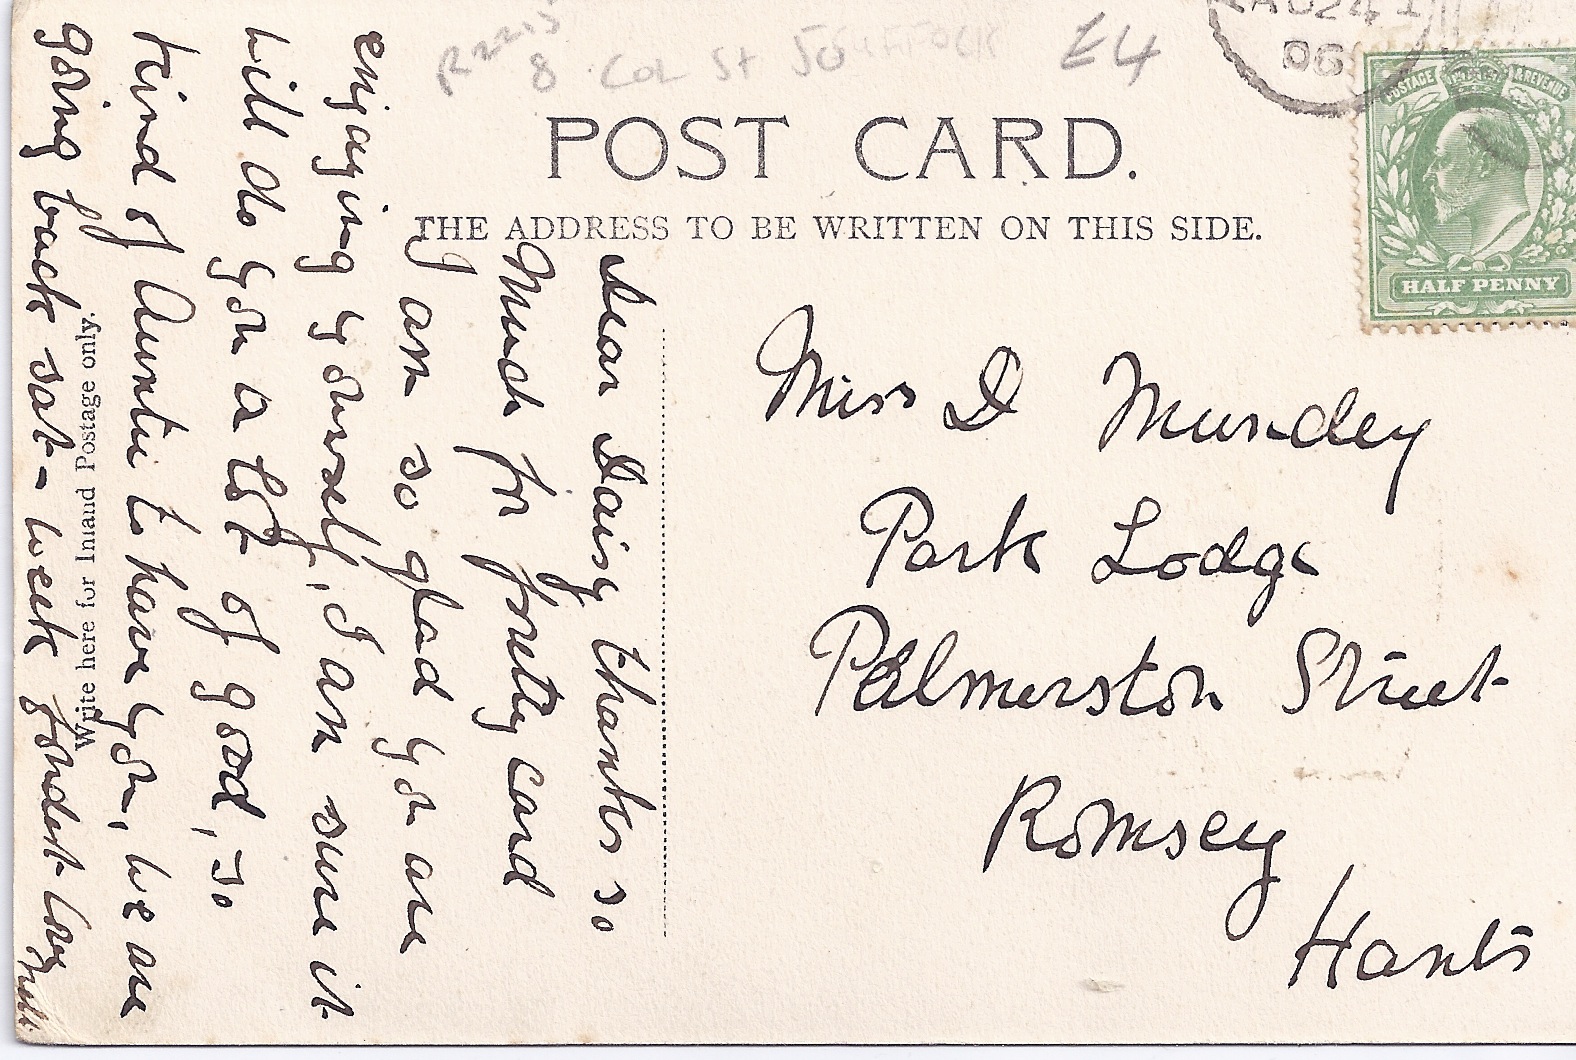 R2215
8 COL St SUFFOLK £4
AU 24
06
POSTAGE & REVENUE
HALF PENNY
POST CARD.
THE ADDRESS TO BE WRITTEN ON THIS SIDE.
Write here for Inland Postage only.
Dear Daisy thanks so
Much for pretty card
I am so glad you are
enjoying yourself, I am sure it
will do you a lot of good, so
kind of Auntie to have you, we are
going back sat- week fondest love
Nell
Miss D Mundey
Park Lodge
Palmerston Street
Romsey
Hants